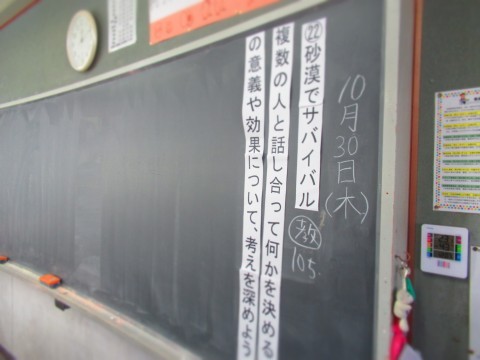 10月30日(木)
㉒砂漠でサバイバル 教 105.
複数の人と話し合って何かを決める
の意義や効果について、考えを深めよう